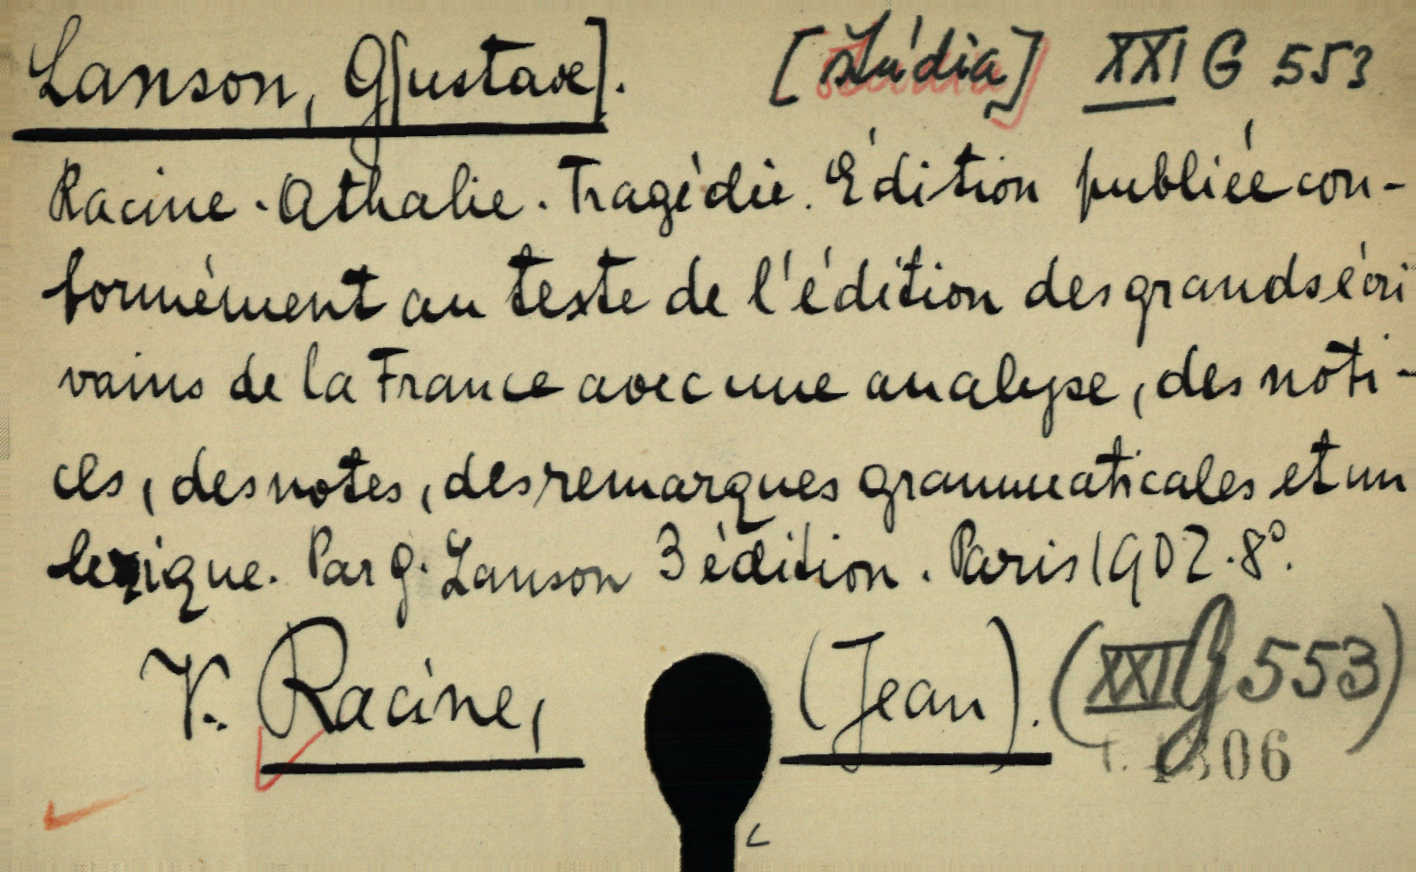 Lanson, G[ustave]. [Stúdia] XXI G 553
Racine. Athalie. Tragédie. Édition publiée con-
formément au texte de l'édition des grands écri
vains de la France avec une analyse, des noti-
ces, des notes, des remarques grammaticales et un
lexique. Par G. Lanson 3 édition. Paris 1902. 8°.
V. Racine, (Jean). (XXI G 553)